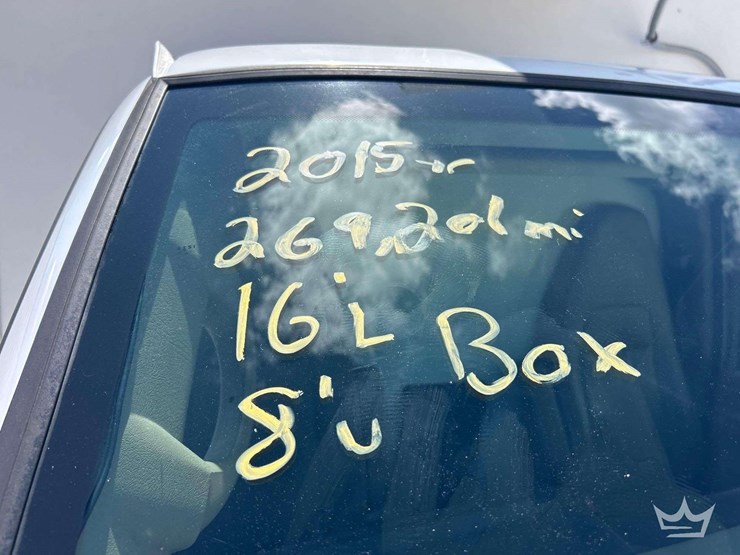 2015
269,201 mi
16'L Box
8'